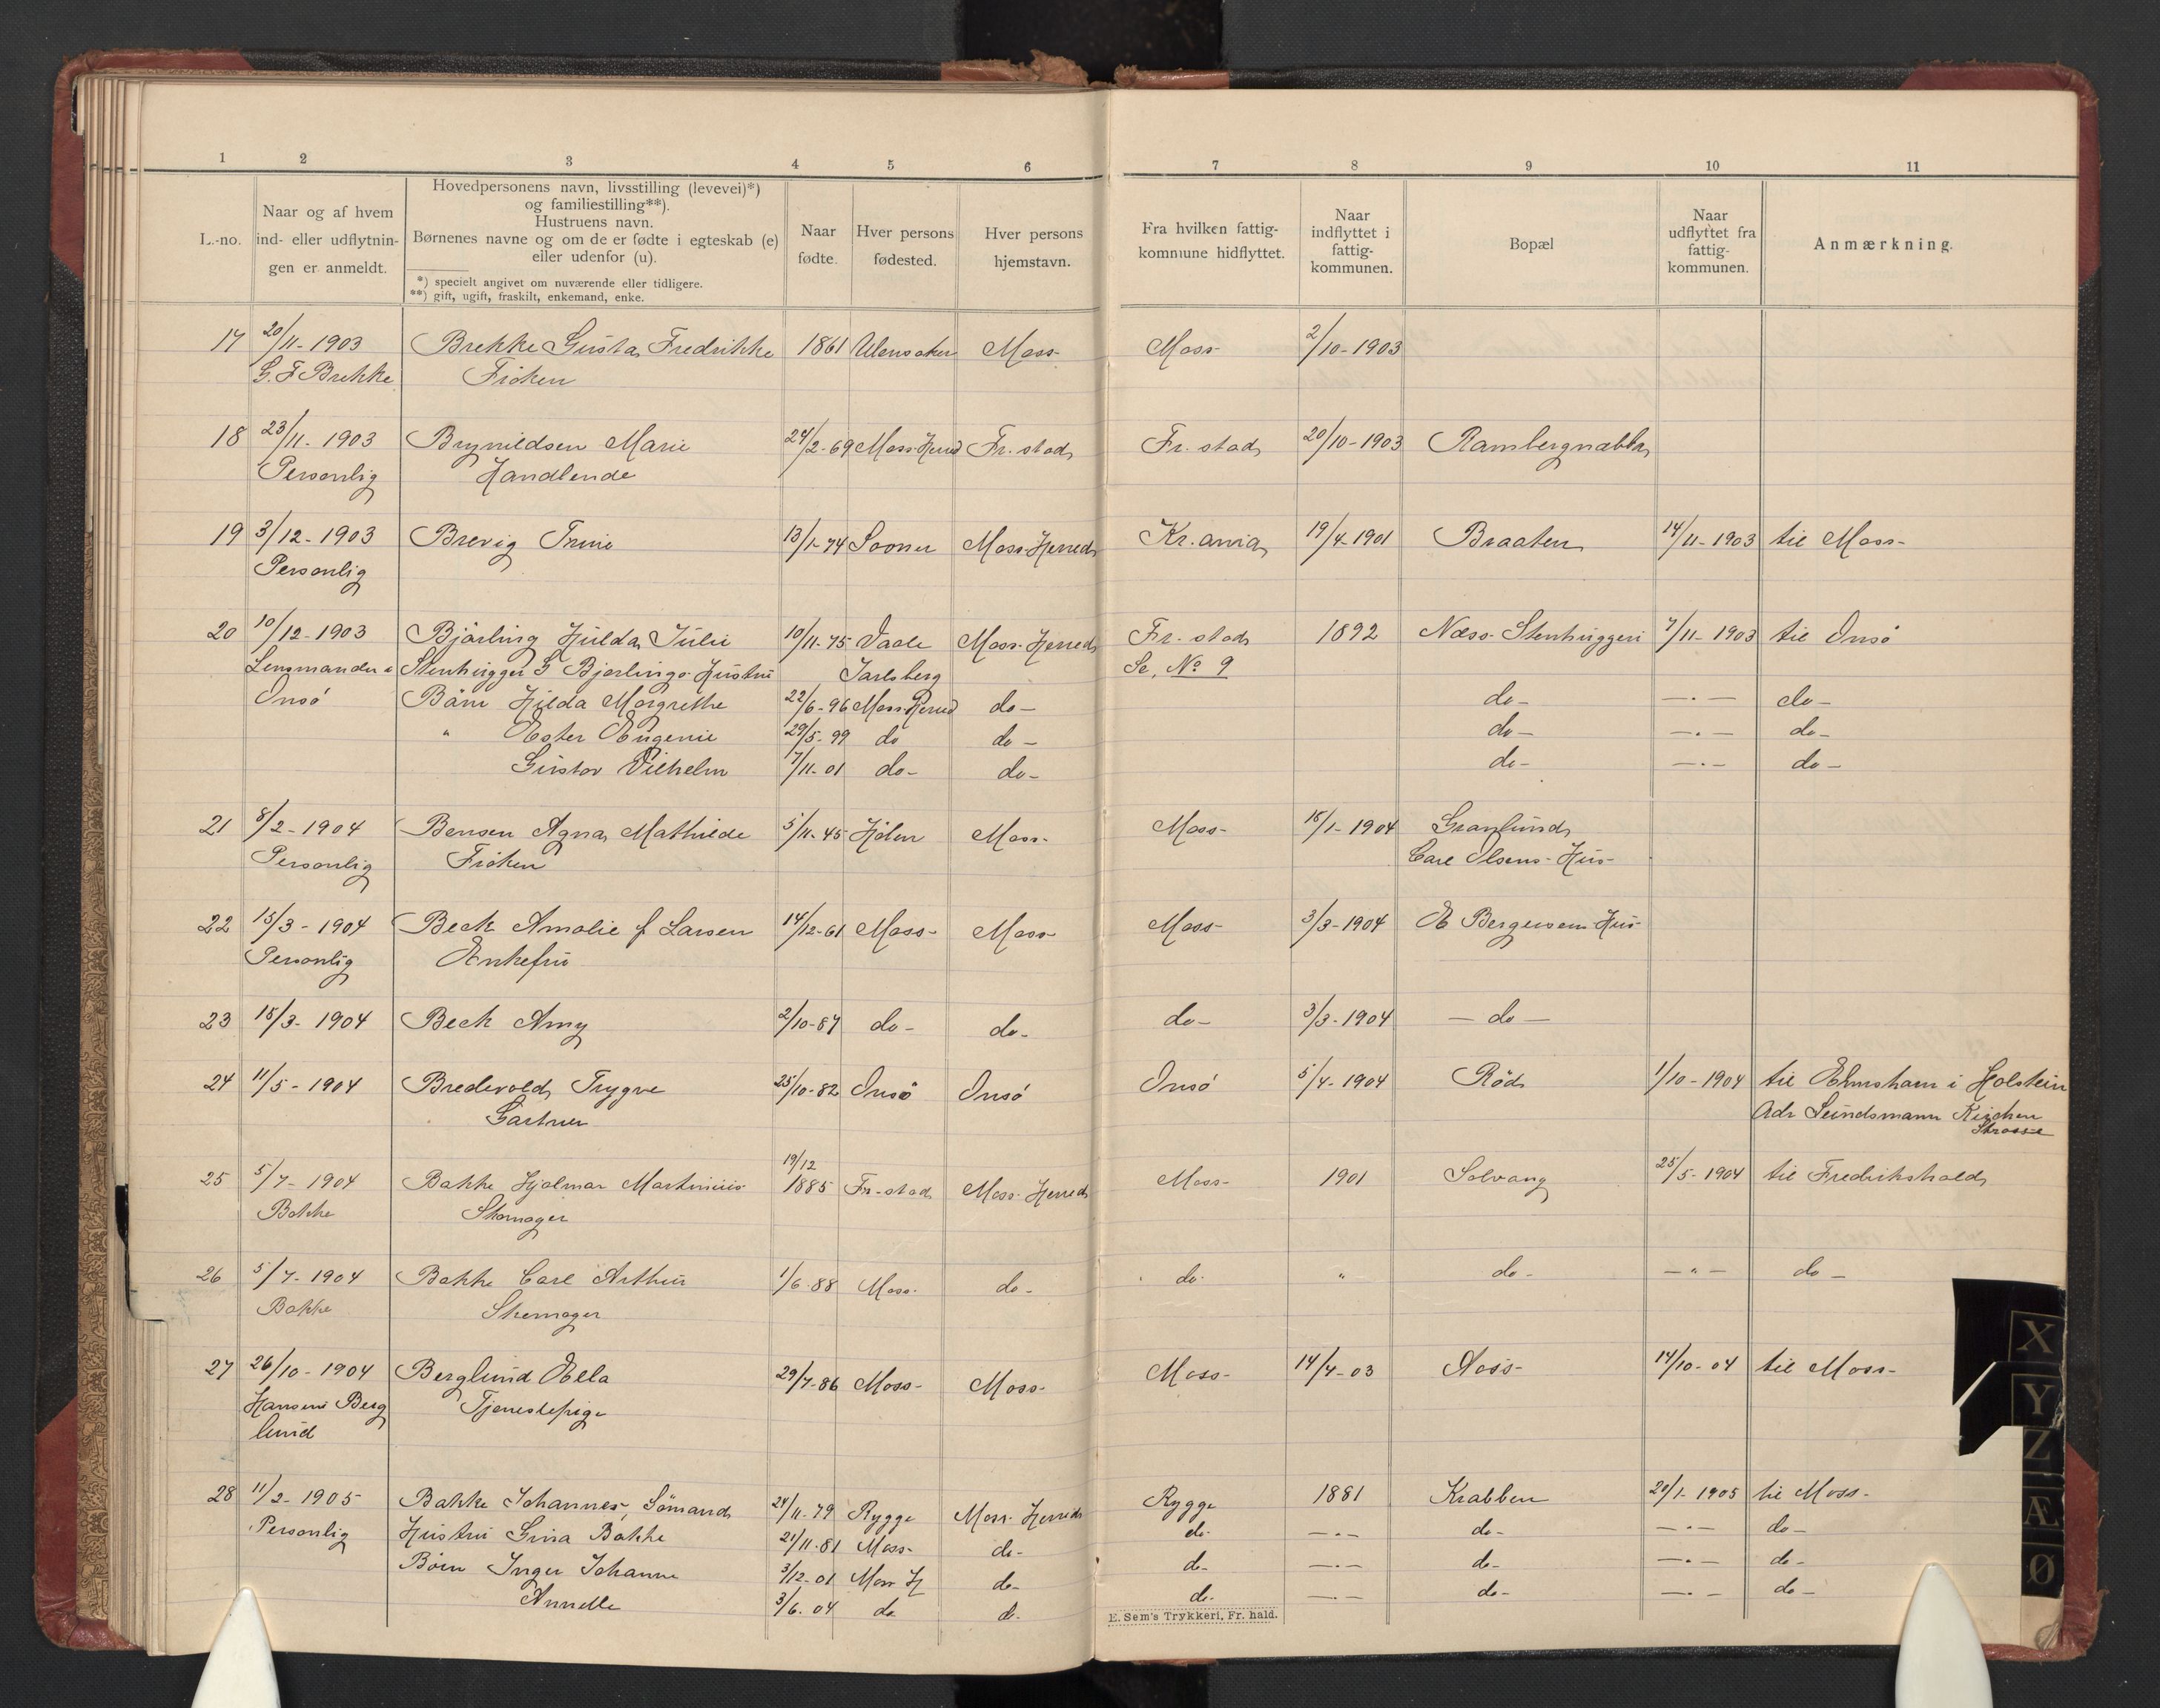 1 2 3 4 5 6 7 8 9 10 11
L.-no.
Naar og af hvem
ind- eller udflytnin-
gen er anmeldt.
Hovedpersonens navn, livsstilling (levevei)*)
og familiestilling**).
Hustruens navn.
Børnenes navne og om de er fødte i egteskab (e)
eller udenfor (u).
*) specielt angivet om nuværende eller tidligere.
**) gift, ugift, fraskilt, enkemand, enke.
Naar
fødte.
Hver persons
fødested.
Hver persons
hjemstavn.
Fra hvilken fattig-
komnıune hidflyttet.
Naar
indflyttet i
fattig-
kommunen.
Bopæl
Naar
udflyttet fra
fattig-
kommunen.
Anmærkning.
17 20/11-1903 Brekke Gusta Fredrikke 1861 Ulensaker Moss- Moss- 2/10-1903
G. F Brekke Frøken
18 23/11-1903 Brynildsen Marie 24/2-69 Moss Herred Fr. stad Fr. stad 20/10-1903 Rambergnabba
Personlig Handlende
19 3/12-1903 Brevig Trine 13/1-74 Sooner Moss Herred Kr.ania 19/4-1901 Braaten 14/11-1903 til Moss-
Personlig
20 10/12-1903 Bjärling Hulda Julie 10/11-75 Vaale Moss-Herred Fr. stad 1892 Næss Stenhuggeri 7/11-1903 til Onsö
Lensmanden i Stenhugger G Bjerlings Hustru Jarlsberg Se, No 9
Onsö Bärn Hilda Margrethe 22/6-96 Moss Herred do- do- —·— do-
" Ester Eugenie 29/5-99 do do- do- —·— do-
Gustav Vilhelm 7/11-01 do- do- do- —·— do-
21 8/2-1904 Bensen Agna Mathilde 5/11-45 Hölen Moss- Moss- 15/1-1904 Granlund
Personlig Frøken Carl Olsens Hus-
22 15/3-1904 Beck Amalie f Larsen 14/12-61 Moss- Moss- Moss- 3/3-1904 E Bergersens Hus
Personlig Enkefru
23 15/3-1904 Beck Amy 2/10-87 do- do- do- 3/3-1904 — do —
24 11/5-1904 Bredevold Trygve 25/10-82 Onsö Onsö Onsö 5/4-1904 Röd 1/10-1904 til Elmshorn i Holstein
Gartner Adr Sündsmann Kirchen
Strasse
19/12
25 5/7-1904 Bakke Hjalmar Martinius 1885 Fr-stad Moss-Herred Moss- 1901 Solvang 25/5-1904 til Fredrikshald
Bakke Skomager
26 5/7-1904 Bakke Carl Arthur 1/6-88 Moss- do- do- " do- —"— do-
Bakke Skomager
27 26/10-1904 Berglund Ella 29/7-86 Moss- Moss- Moss- 14/4-03 14/10-04 til Moss-
Hansine Berg Tjenestepige
lund
28 11/2-1905 Bakke Johannes, Sömand 24/11-79 Rygge Moss-Herred Rygge 1881 Krabben 20/1-1905 til Moss-
Personlig Hustru Gina Bakke 21/11-81 Moss- do- do- —·— do- —·— do-
Børn Inger Johanne 3/12-01 Moss H do- do- —·— do- —·— do-
Annette 3/6-04 do d. do- —·— do- —·— do-
E. Sem's Trykkeri, Fr. hald.
X
Y
Z
Æ
Ø